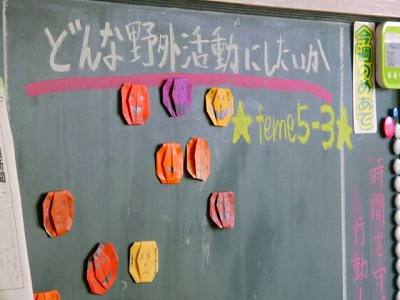 どんな野外活動にしたいか
★teme5-3★
今週のめあて
時間を守
行動